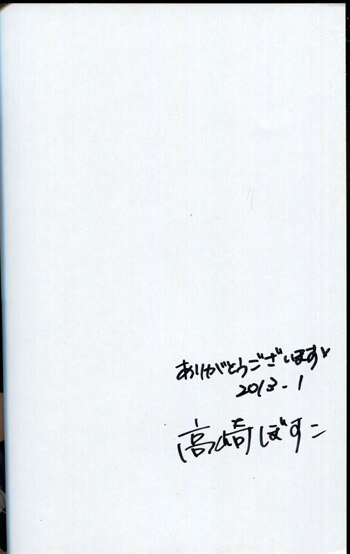 ありがとうございます♥
2013-1
高崎ぼすこ